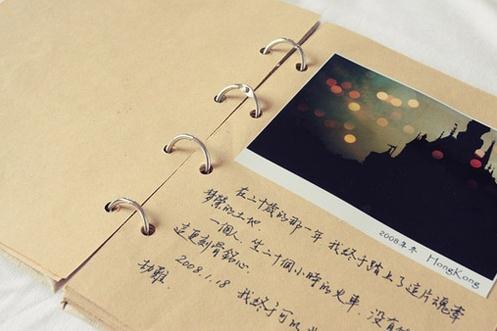 2008年冬 HongKong
在二十歲的那一年 我終于踏上了這片魂牽
夢縈的土地
一個人.坐二十個小時的火車.沒有
這更刻骨銘心.
2008.1.18
劫難. 我終于可以